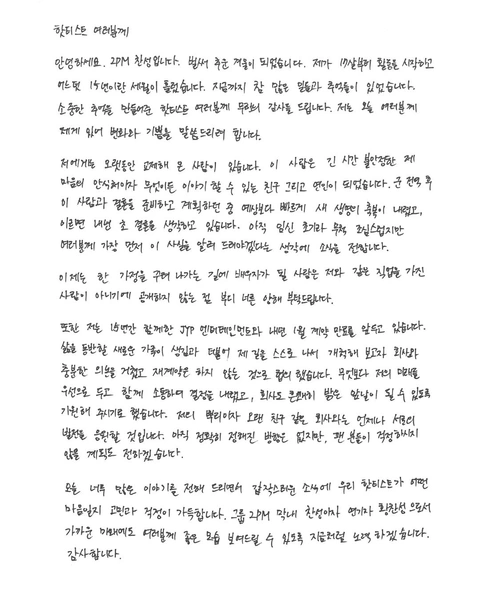 핫티스트 여러분께
안녕하세요. 2PM 찬성입니다. 벌써 추운 겨울이 되었습니다. 제가 17살부터 활동을 시작하고
어느덧 15년이란 세월이 흘렀습니다. 지금까지 참 많은 일들과 추억들이 있었습니다.
소중한 추억을 만들어준 핫티스트 여러분께 무한의 감사를 드립니다. 저는 오늘 여러분께
제게 있어 변화와 기쁨을 말씀드리려 합니다.
저에게는 오랫동안 교제해 온 사람이 있습니다. 이 사람은 긴 시간 불안정한 제
마음의 안식처이자 무엇이든 이야기 할 수 있는 친구 그리고 연인이 되었습니다. 군 전역 후
이 사람과 결혼을 준비하고 계획하던 중 예상보다 빠르게 새 생명의 축복이 내렸고,
이르면 내년 초 결혼을 생각하고 있습니다. 아직 임신 초기라 무척 조심스럽지만
여러분께 가장 먼저 이 사실을 알려 드려야겠다는 생각에 소식을 전합니다.
이제는 한 가정을 꾸려 나가는 길에 배우자가 될 사람은 저와 같은 직업을 가진
사람이 아니기에 공개하지 않는 점 부디 너른 양해 부탁드립니다.
또한 저는 15년간 함께한 JYP 엔터테인먼트와 내년 1월 계약 만료를 앞두고 있습니다.
삶을 동반할 새로운 가족이 생김과 더불어 제 길을 스스로 나서 개척해 보고자 회사와
충분한 의논을 거쳤고 재계약은 하지 않는 것으로 협의 했습니다. 무엇보다 저의 미래를
우선으로 두고 함께 소통하며 결정을 내렸고, 회사도 온전히 밝은 앞날이 될 수 있도록
기원해 주시기로 했습니다. 저의 뿌리이자 오랜 친구 같은 회사와는 언제나 서로의
발전을 응원할 것입니다. 아직 정확히 정해진 방향은 없지만, 팬 분들이 걱정하시지
않을 계획도 전하겠습니다.
오늘 너무 많은 이야기를 전해 드리면서 갑작스러운 소식에 우리 핫티스트가 어떤
마음일지 고민과 걱정이 가득합니다. 그룹 2PM 막내 찬성이자 연기자 황찬성으로서
가까운 미래에도 여러분께 좋은 모습 보여드릴 수 있도록 지금처럼 노력 하겠습니다.
감사합니다.